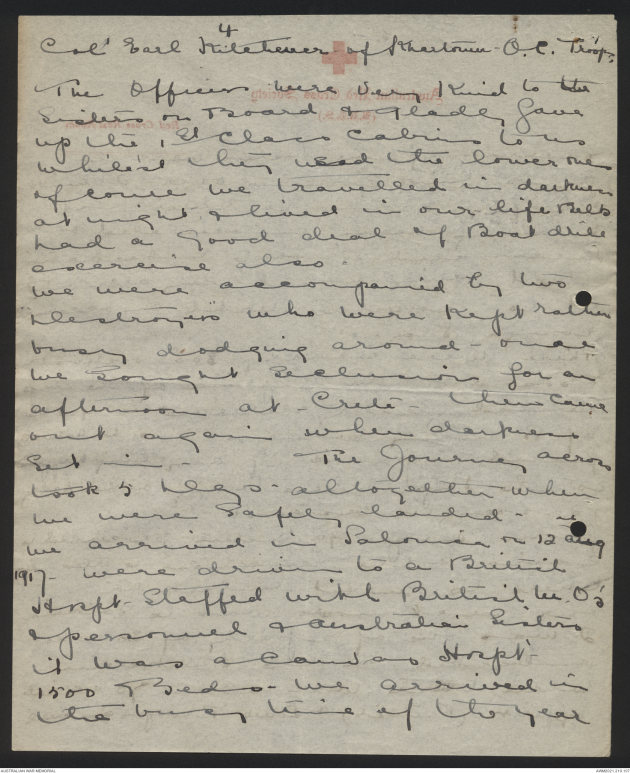 4
Col' Earl Kitchener of Khartoum - O.C. Troops.
The Officers were very kind to the
Sisters on Board & gladly gave
up the 1st Class Cabins to us
whilst they used the lower ones
of course we travelled in darkness
at night & lived in our life Belts
had a good deal of Boat drill
exercise also.
We were accompanied by two
Destroyers who were kept rather
busy dodging around - once
we sought seclusion for an
afternoon at - Crete - then came
out again when darkness
set in - The Journey across
took 5 days - altogether when
we were safely landed -
we arrived in Salonica on 12th Aug
1917 - were driven to a British
Hospt - Staffed with British M.O's
& personnel & Australian Sisters
it was a canvas Hospt -
1500 Beds - we arrived in
the busy time of the year
AUSTRALIAN WAR MEMORIAL